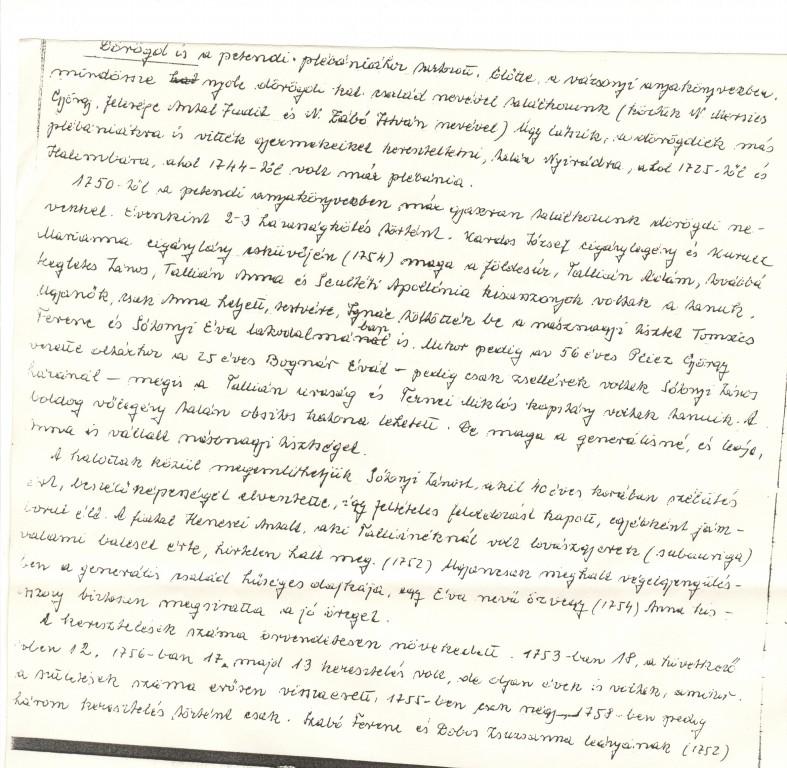 Dörögd is a petendi plébániához tartozott. Előtte a vázsonyi anyakönyvekben
mindössze hat nyolc dörögdi kat. család nevével találkozunk (köztük N Mersics
György, felesége Antal Judit és N. Szabó István nevével) Úgy látszik, a dörögdiek más
plébániákra is vitték gyermekeiket keresztelteni, talán Nyirádra, ahol 1725-től és
Halimbára, ahol 1744-től volt már plébánia.
1750-től a petendi anyakönyvekben már gyakran találkozunk dörögdi ne-
vekkel. Évenkint 2-3 házasságkötés történt. Kardos József cigánylegény és Kurucz
Marianna cigánylány esküvőjén (1754) maga a földesúr, Tallián Ádám, továbbá
Hegletes János, Tallián Anna és Scultéti Apollónia kisasszonyok voltak a tanuk.
Ugyanők, csak Anna helyett, testvére, Ignác töltötték be a násznagyi tisztet Tomsics
Ferenc és Sótonyi Éva lakodalmában is. Mikor pedig az 56 éves Péicz György
vezette oltárhoz a 25 éves Bognár Évát – pedig csak zsellérek voltak Sótonyi János
házánál – mégis a Tallián uraság és Fernei Miklós kapitány voltak tanuik. A
boldog vőlegény talán obsitos katona lehetett. De maga a generálisné, és leája,
Anna is vállalt násznagyi tisztséget.
A halottak közül megemlíthetjük Sótonyi Jánost, akit 40 éves korában szélütés
ért, beszélőképességét elvesztette, így feltételes feloldozást kapott, egyébként jám-
borul élt. A fiatal Henesei Antalt, aki Talliánéknál volt lovászgyerek (subauriga)
valami baleset érte, hirtelen halt meg. (1752) Ugyancsak meghalt végelgyengülés-
ben a generális család hűséges dajkája, egy Éva nevű özvegy (1754) Anna kis-
asszony biztosan megsiratta a jó öreget.
A keresztelések száma örvendetesen növekedett. 1753-ban 18, a következő
évben 12, 1756-ban 17, majd 13 keresztelés volt, de olyan évek is voltak, amikor
a születések száma erősen visszaesett, 1755-ben csak négy, 1758-ben pedig
három keresztelés történt csak. Szabó Ferenc és Dobos Zsuzsanna leányának (1752)